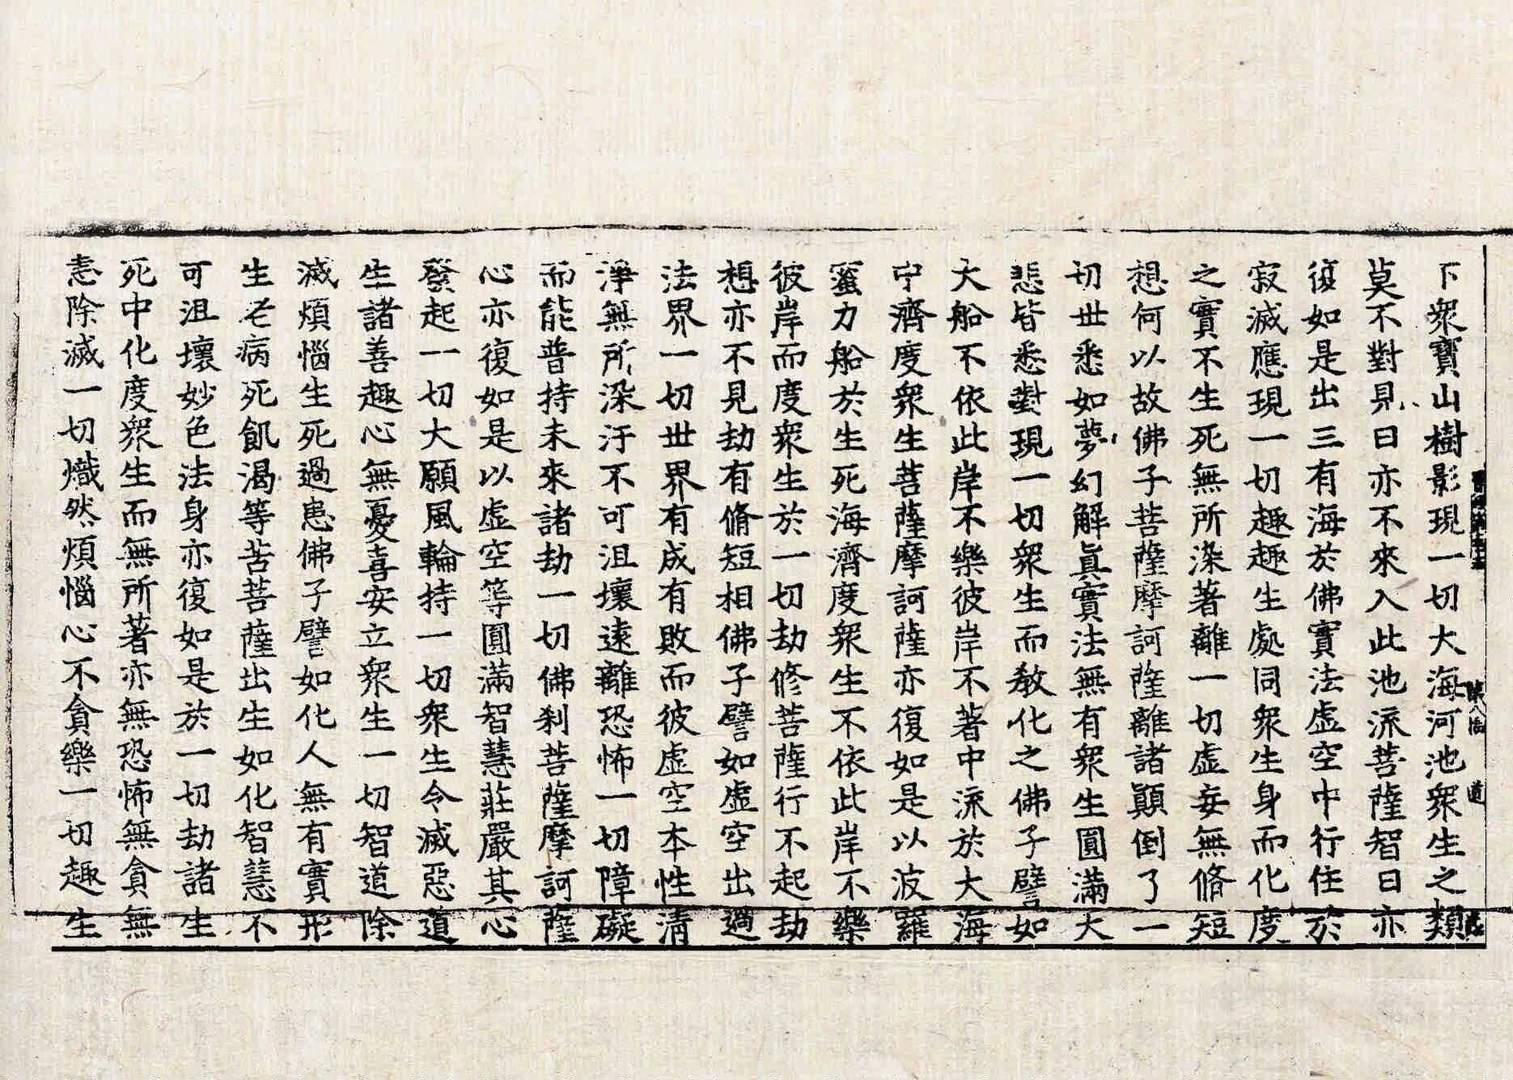 下衆寶山樹影現一切大海河池衆生之類
莫不對見日亦不來入此池流菩薩智日亦
復如是出三有海於佛實法虛空中行住於
寂滅應現一切趣趣生處同衆生身而化度
之實不生死無所染著離一切虛妄無脩短
想何以故佛子菩薩摩訶薩離諸顚倒了一
切世悉如夢幻解眞實法無有衆生圓滿大
悲皆悉對現一切衆生而敎化之佛子譬如
大船不依此岸不樂彼岸不著中流於大海
中濟度衆生菩薩摩訶薩亦復如是以波羅
蜜力船於生死海濟度衆生不依此岸不樂
彼岸而度衆生於一切劫修菩薩行不起劫
想亦不見劫有脩短相佛子譬如虛空出過
法界一切世界有成有敗而彼虛空本性清
淨無所染汙不可沮壞遠離恐怖一切障礙
而能普持未來諸劫一切佛刹菩薩摩訶薩
心亦復如是以虛空等圓滿智慧莊嚴其心
發起一切大願風輪持一切衆生令滅惡道
生諸善趣心無憂喜安立衆生一切智道除
滅煩惱生死過患佛子譬如化人無有實形
生老病死飢渴等苦菩薩出生如化智慧不
可沮壞妙色法身亦復如是於一切劫諸生
死中化度衆生而無所著亦無恐怖無貪無
恚除滅一切熾然煩惱心不貪樂一切趣生